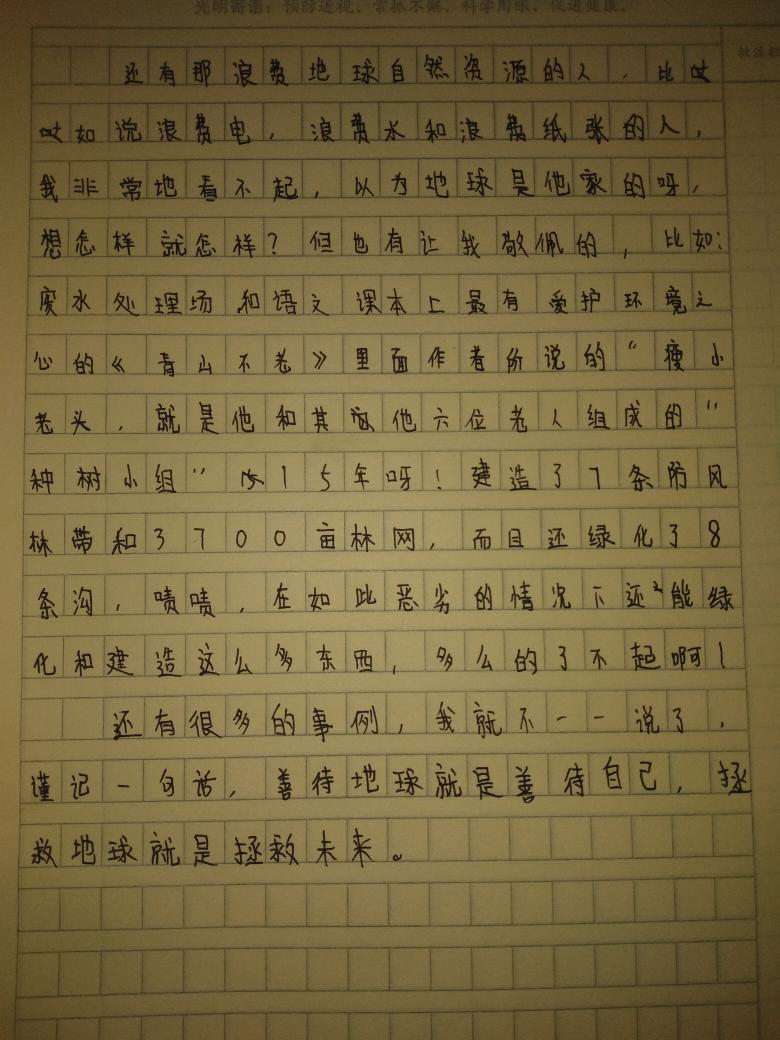 光明寄语：预防近视，常抓不懈，科学用眼，促进健康。
批注
还有那浪费地球自然资源的人，比
如说浪费电，浪费水和浪费纸张的人，
我非常地看不起，以为地球是他家的呀，
想怎样就怎样？但也有让我敬佩的，比如：
废水处理场和语文课本上最有爱护环境之
心的《青山不老》里面作者所说的“瘦小
老头，就是他和其他六位老人组成的“
种树小组”15年呀！建造了7条防风
林带和3700亩林网，而且还绿化了8
条沟，啧啧，在如此恶劣的情况下还能绿
化和建造这么多东西，多么的了不起啊！
还有很多的事例，我就不一一说了，
谨记一句话，善待地球就是善待自己，拯
救地球就是拯救未来。